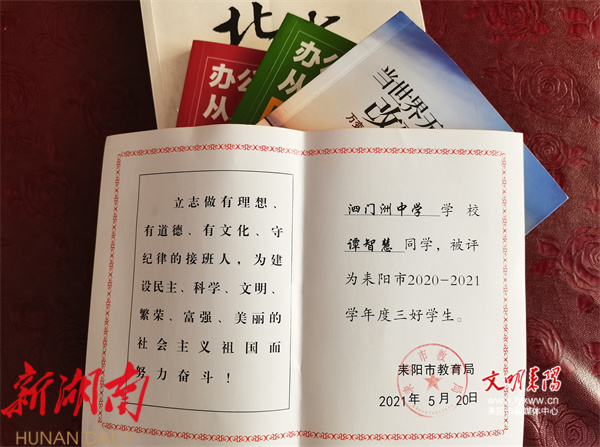 办公
从
办公
从
当世界
改
万变
立志做有理想、
有道德、有文化、守
纪律的接班人，为建
设民主、科学、文明、
繁荣、富强、美丽的
社会主义祖国而
努力奋斗！
泗门洲中学 学校
谭智慧 同学，被评
为耒阳市2020-2021
学年度三好学生。
耒阳市教育局
2021年 5月 20日
新湖南
文明耒阳